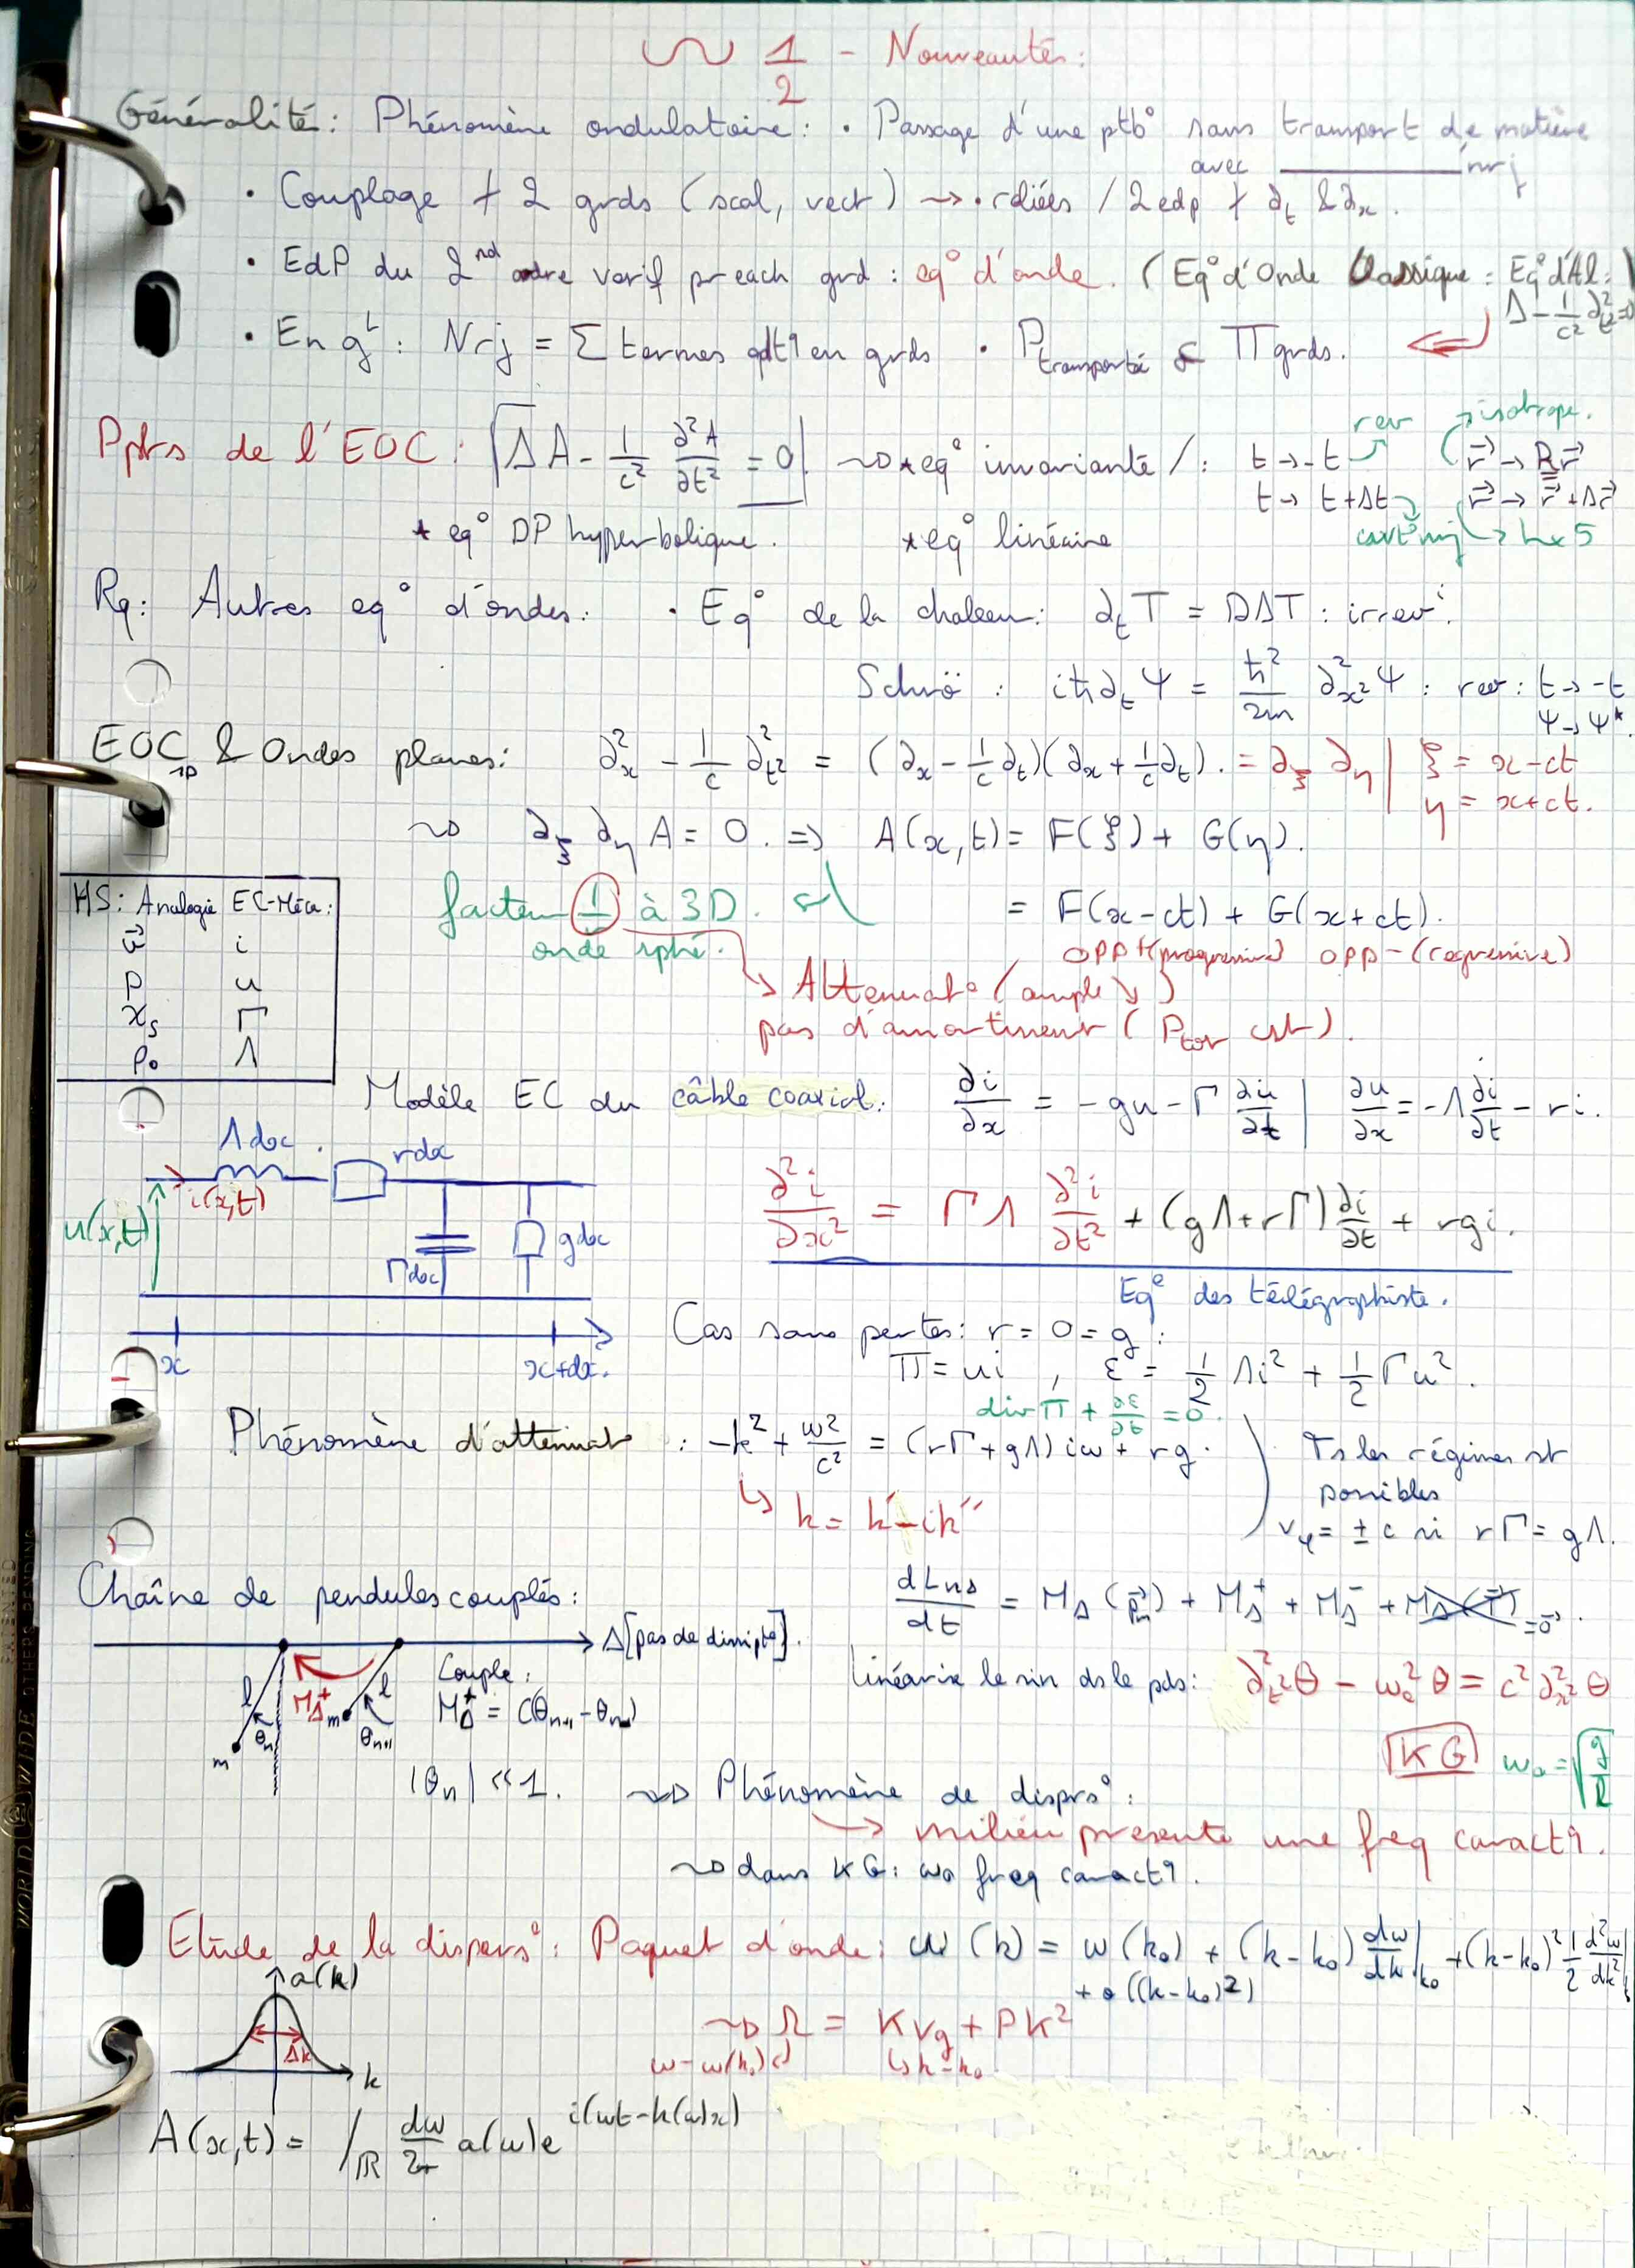 1/2 - Nouveautés:
Généralité: Phénomène ondulatoire: • Passage d'une ptb° sans transport de matière
avec ——— nrj
• Couplage + 2 grds (scal, vect) → • reliées / 2 edp + ∂t & ∂x.
• EdP du 2nd ordre verif pr each grd : eq° d'onde. (Eq° d'Onde Classique : Eq° d'Al:)
Δ - 1/c² ∂²t² = 0
• En gL : Nrj = Σ termes qdt9 en grds • Ptransporté & Π grds.
Pptés de l'EOC : ΔA - 1/c² ∂²A/∂t² = 0 ~> * eq° invariante / : t → -t rev r⃗ → Rr⃗ → isotrope.
t → t+Δt r⃗ → r⃗ + Δr⃗
* eq° DP hyperbolique. * eq° linéaire
Rq: Autres eq° d'ondes: • Eq° de la chaleur: ∂t T = DΔT : irrev.
Schrö : iħ∂t Ψ = ħ²/2m ∂²x² Ψ : rev : t → -t
Ψ → Ψ*
EOC 1D & Ondes planes: ∂²x - 1/c ∂²t² = (∂x - 1/c ∂t)(∂x + 1/c ∂t). = ∂ξ ∂η | ξ = x-ct
η = x+ct.
~> ∂ξ ∂η A = 0. => A(x,t) = F(ξ) + G(η).
= F(x-ct) + G(x+ct).
OPP+ (progressive) OPP- (regressive)
facteur 1 à 3D.
onde sphé.
→ Attenuat° (ample ↘)
pas d'amortissement (Ptot cst).
HS: Analogie EC-Méca:
v⃗ i
P u
χs Γ
ρ0 Λ
Modèle EC du câble coaxial: ∂i/∂x = -gu - Γ ∂u/∂t | ∂u/∂x = -Λ ∂i/∂t - ri.
Λdx rdx
i(x,t)
u(x,t)
Γdx gdx
x x+dx.
∂²i/∂x² = ΓΛ ∂²i/∂t² + (gΛ+rΓ) ∂i/∂t + rgi.
Eq° des télégraphiste.
Cas sans pertes: r = 0 = g :
Π = ui , ε = 1/2 Λi² + 1/2 Γu².
div Π + ∂ε/∂t = 0.
Phénomène d'attenuat° : -k² + ω²/c² = (rΓ + gΛ) iω + rg.
↳ k = k' - ik''
Ts les régimes st
possibles
vφ = ± c si rΓ = gΛ.
Chaîne de pendules couplés:
Δ [pas de dissipt°].
dLnΔ/dt = MΔ(p⃗n) + MΔ+ + MΔ- + MΔ(T⃗) =0⃗.
Couple:
MΔ+ = C(θn+1 - θn)
l l
MΔ+ m θn θn+1
m
|θn| << 1.
linéarise le sin ds le pds: ∂²t²θ - ω0²θ = c²∂²x²θ
KG ω0 = √(g/l)
~> Phénomène de dispers°:
→ milieu présente une freq caract9.
~> dans KG: ω0 freq caract9.
Etude de la dispers°: Paquet d'onde: ω(k) = ω(k0) + (k-k0) dω/dk|k0 + (k-k0)² 1/2 d²ω/dk²|
+ o((k-k0)²)
a(k)
Δk
k
~> Ω = K vg + PK²
ω-ω(k0) ↳ k-k0
A(x,t) = ∫ℝ dω/2π a(ω) e^i(ωt-k(ω)x)